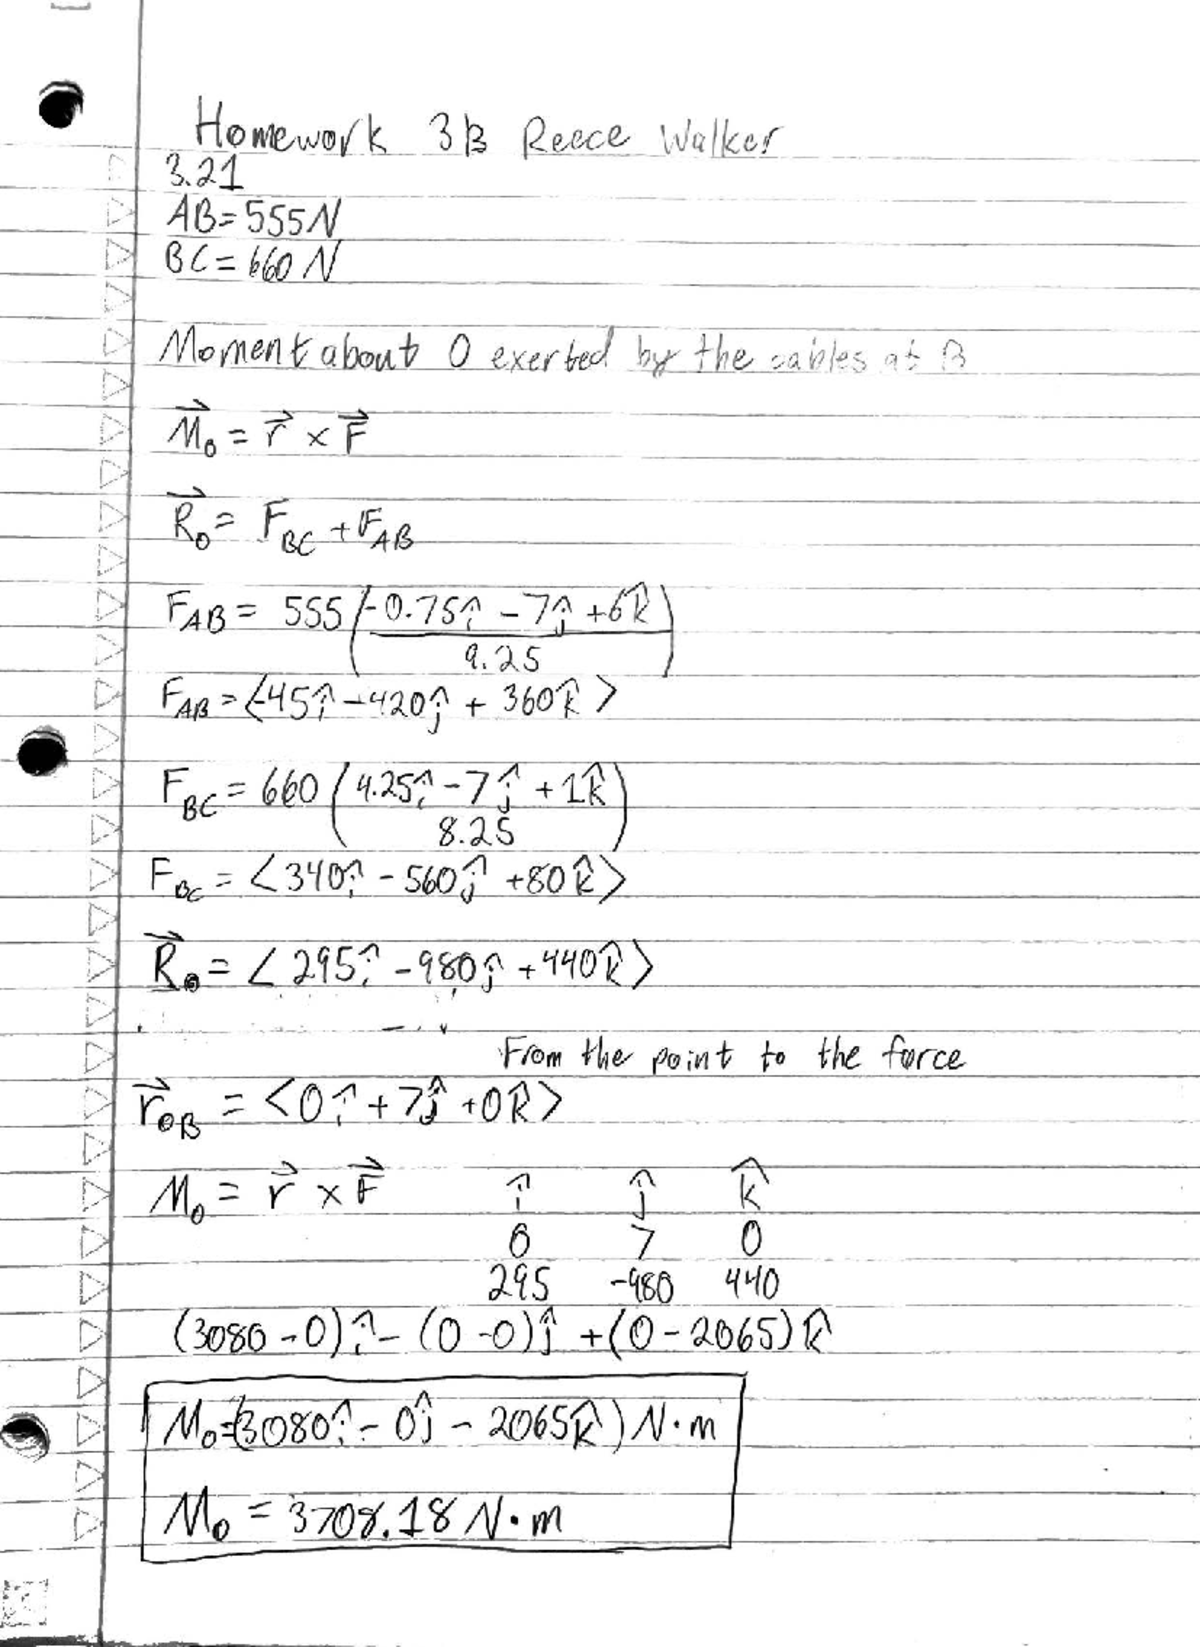 Homework 3B Reece Walker
3.21
AB = 555N
BC = 660 N
Moment about O exerted by the cables at B
M⃗₀ = r⃗ × F⃗
R⃗₀ = F_BC + F_AB
F_AB = 555 (-0.75î - 7ĵ + 6k̂ / 9.25)
F_AB = <-45î - 420ĵ + 360k̂>
F_BC = 660 (4.25î - 7ĵ + 1k̂ / 8.25)
F_BC = <340î - 560ĵ + 80k̂>
R⃗₀ = <295î - 980ĵ + 440k̂>
From the point to the force
r⃗_OB = <0î + 7ĵ + 0k̂>
M₀ = r⃗ × F⃗ î ĵ k̂
0 7 0
295 -980 440
(3080 - 0)î - (0 - 0)ĵ + (0 - 2065)k̂
M₀ = (3080î - 0ĵ - 2065k̂) N·m
M₀ = 3708.18 N·m